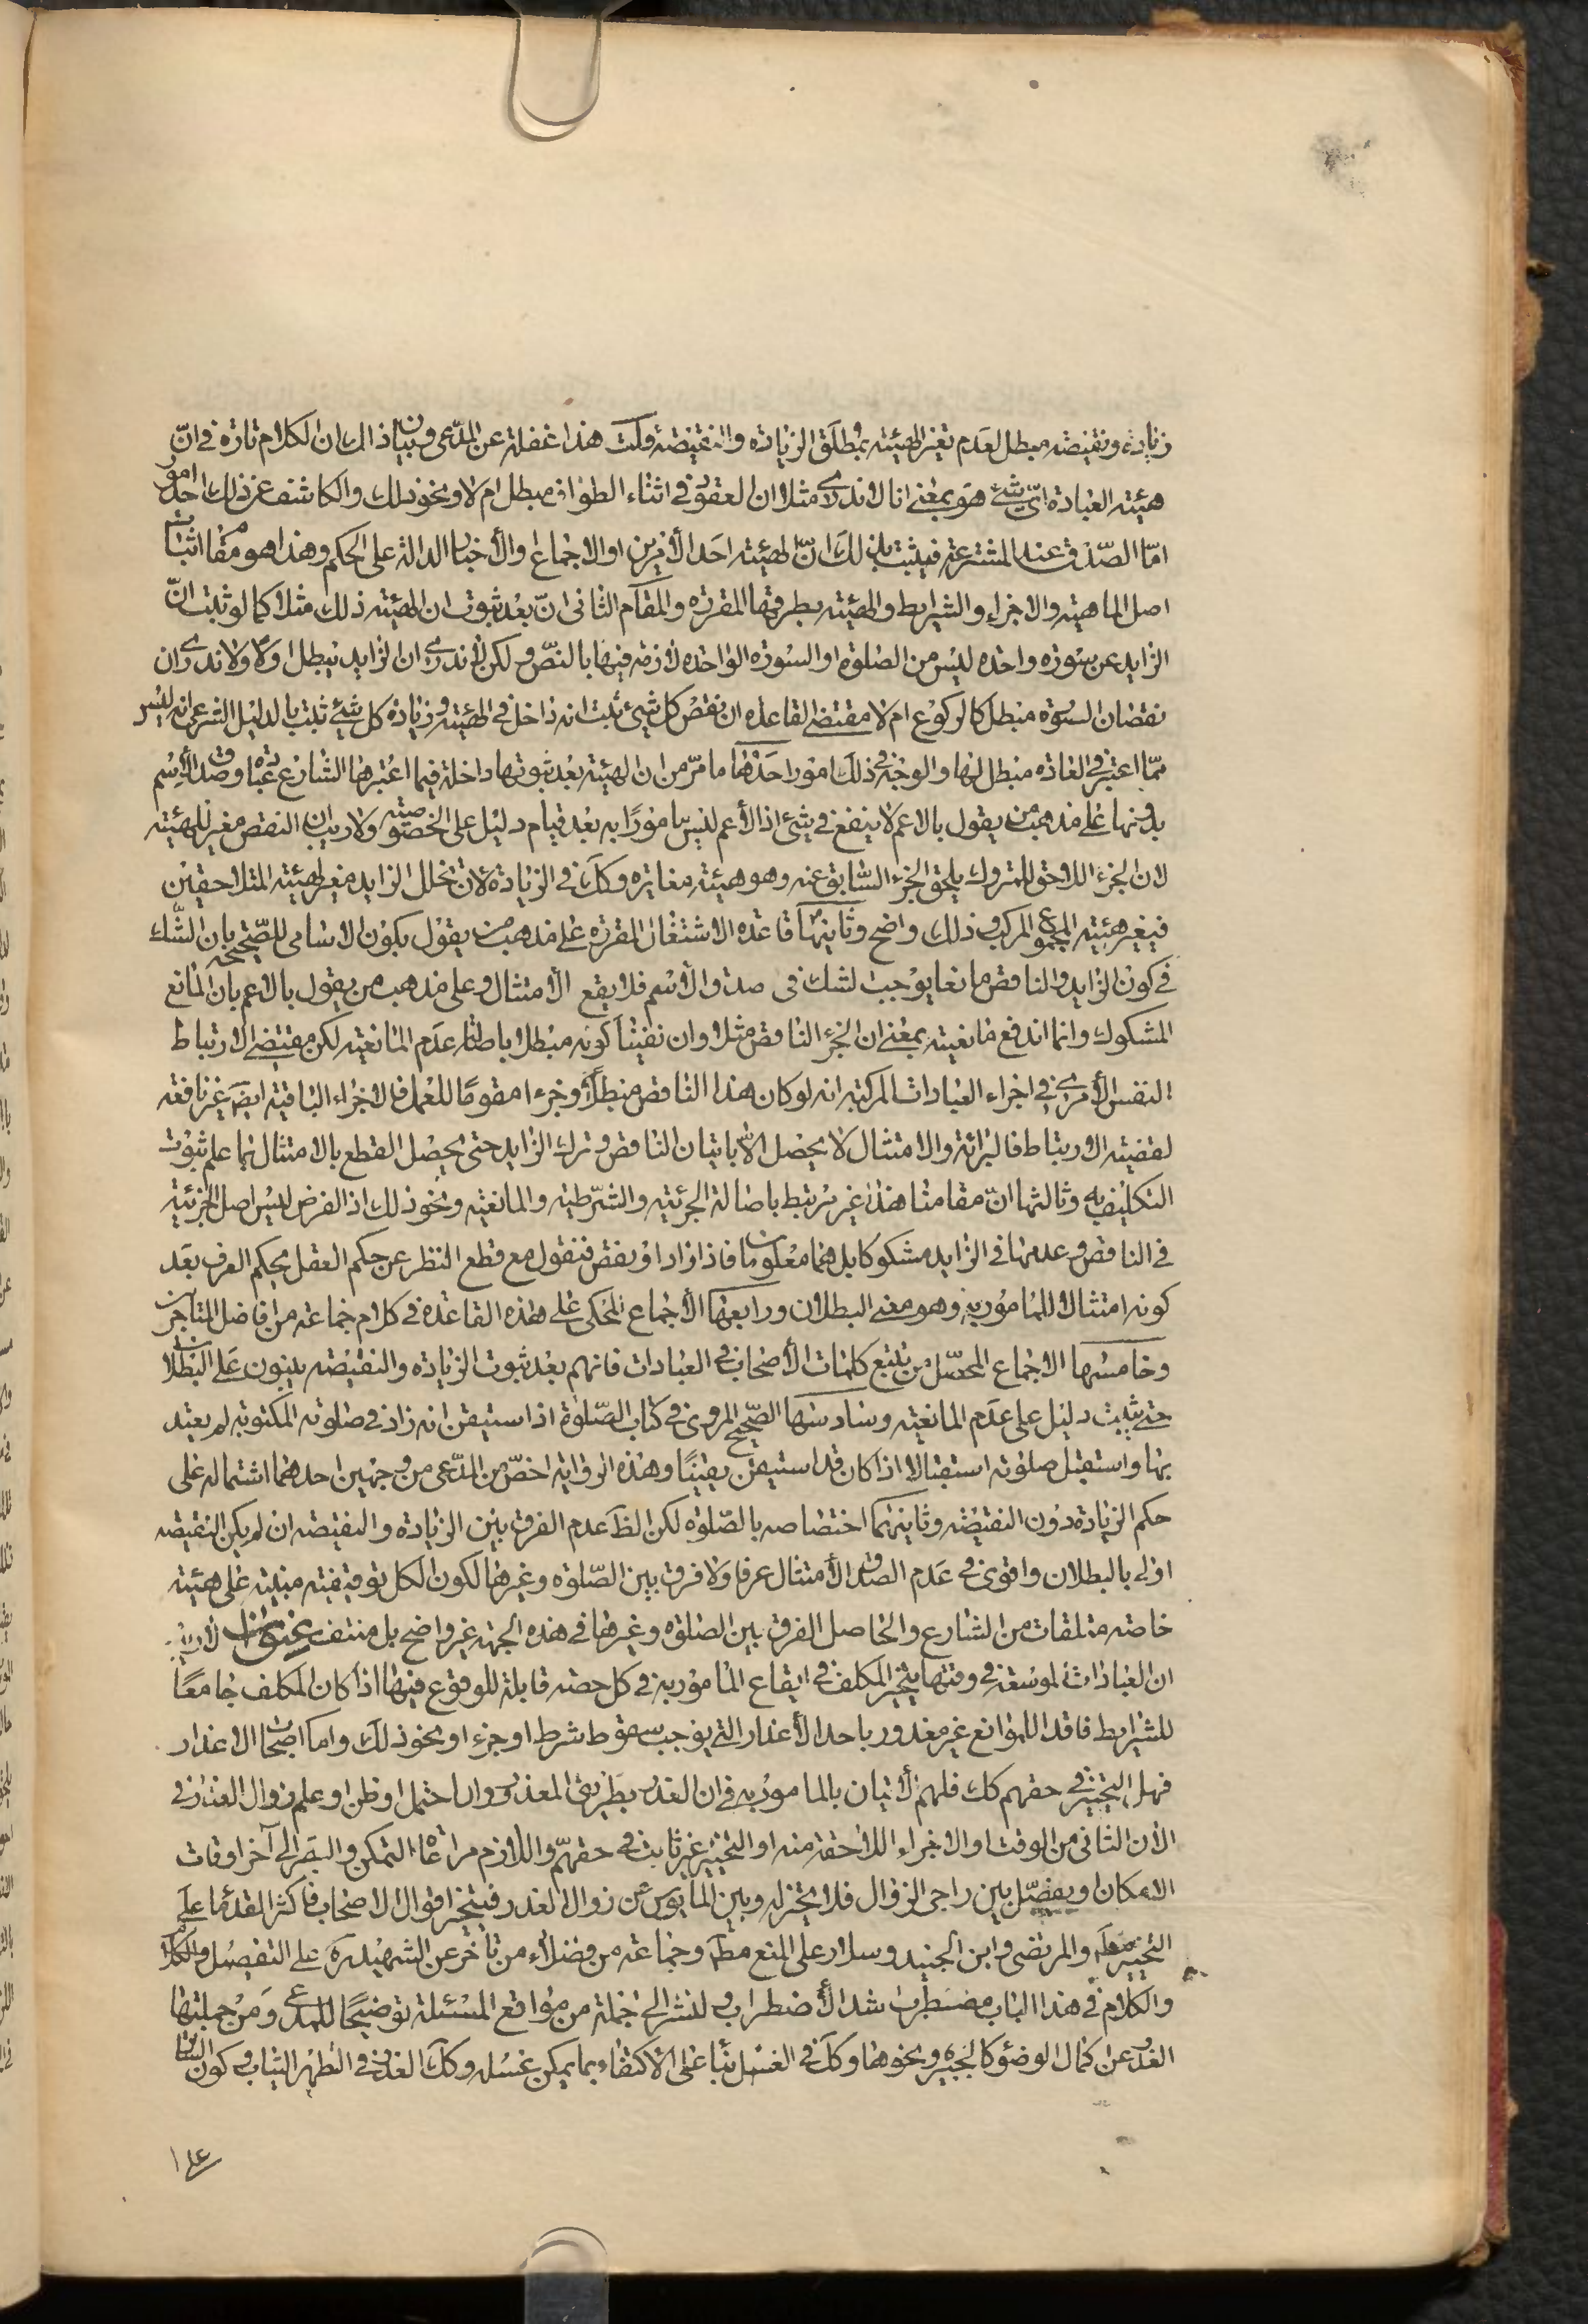 زيادته ونقيضته مبطل لعدم تغير الهيئة بمطلق الزيادة والنقيضة قلت هذا غفلة عن المدعى وبيان ذلك ان الكلام تارة في انّ
هيئة العبادة اىّ شئ هو بمعنى انا لا ندرى مثلا ان العقود في اثناء الطواف مبطل ام لا ونحو ذلك والكاشف عن ذلك احد امور
امّا الصّدق عند المتشرعة فيثبت بذلك انّ الهيئة احد الأمرين او الاجماع والأخبار الدالة على الحكم وهذا هو مقام اثبات
اصل الماهية والاجزاء والشرايط والهيئة بطرقها المقررة والمقام الثانى انّ بعد ثبوت ان الهيئة ذلك مثلا كما لو ثبت انّ
الزايد عن سورة واحدة ليس من الصلوة او السورة الواحدة لازمة فيها بالنصّ ولكن لا ندرى ان الزايد تبطل اولا ولا ندرى ان
نقصان السورة مبطل كالركوع ام لا مقتضى القاعدة ان نقص كل شئ ثبت انه داخل في الهيئة وزيادة كل شئ ثبت بالدليل الشرعى انه ليس
ممّا اعتبر في العادة مبطل لها والوجه في ذلك امور احدهما ما مرّ من ان الهيئة بعد ثبوتها داخلة فيما اعتبرها الشارع عبادة وصدق الأسم
بدونها على مذهب من يقول بالاعم لا ينفع في شئ اذ الأعم ليس مامورًا به بعد قيام دليل على الخصوصية ولا ريب ان النقص مغير للهيئة
لان الجزء اللاحق للمتروك يلحق الجزء السّابق عنه وهو هيئة مغايرة وكك في الزيادة لان تخلل الزايد مغير لهيئة المتلاحقين
فيغير هيئة المجموع المركب وذلك واضح وثانيها قاعدة الاشتغال المقررة على مذهب من يقول بكون الاسامى للصّحيحة بان الشّك
في كون الزايد والناقص مانعا يوجب الشك فى صدق الأسم فلا يقع الأمتثال وعلى مذهب من يقول بالاعم بان المانع
المشكوك وانما اندفع مانعيته بمعنى ان الجزء الناقص مثلا وان نفينا كونه مبطلا باصالة عدم المانعية لكن مقتضى الارتباط
النفس الأمرى في اجزاء العبادات المركبة انه لو كان هذا الناقص مبطلا وجزءا مقومًا للعمل فالاجزاء الباقية ايضَ غير نافعة
لقضية الارتباط فالبرائة والامتثال لا يحصل الا باتيان الناقص وترك الزايد حتى يحصل القطع بالامتثال لما علم ثبوت
التكليف به وثالثها انّ مقامنا هذا غير مرتبط باصالة الجزئية والشّرطية والمانعية ونحو ذلك اذ الفرض ليس اصل الجزئية
في الناقص وعدمها في الزايد مشكوكا بل هما معلومان فاذا زاد او نقص فنقول مع قطع النظر عن حكم العقل يحكم العرف بعد
كونه امتثالا للمامور به وهو معنى البطلان ورابعها الأجماع المحكى على هذه القاعدة في كلام جماعة من افاضل المتاخرين
وخامسها الاجماع المحصّل من تتبع كلمات الأصحاب في العبادات فانهم بعد ثبوت الزيادة والنقيضة يبنون على البطلان
حتى يثبت دليل على عدم المانعية وسادسها الصّحيح المروى في كتاب الصّلوة اذا استيقن انه زاد في صلوته المكتوبة لم يعتد
بها واستقبل صلوته استقبالا اذا كان قد استيقن يقينًا وهذه الرواية اخصّ من المدّعى من وجهين احدهما اشتماله على
حكم الزيادة دون النقيضة وثانيهما اختصاصه بالصّلوة لكن الظَ عدم الفرق بين الزيادة والنقيضة ان لم يكن النقيضة
اولى بالبطلان واقوى في عدم الصدق الأمتثال عرفا ولا فرق بين الصّلوة وغيرها لكون الكل توقيفية مبنية على هيئة
خاصة متلقات من الشارع والحاصل الفرق بين الصلوة وغيرها في هذه الجهة غير واضح بل منتف عنوان لا ريب
ان العبادات الموسّعة في وقتها يتخير المكلف في ايقاع المامور به في كل حصة قابلة للوقوع فيها اذا كان المكلف جامعًا
للشرايط فاقدا للموانع غير معذور باحد الأعذار التى يوجب سقوط شرط او جزء او نحو ذلك واما اصحاب الاعذار
فهل التخيير في حقهم كك فلهم الأتيان بالمامور به في ان العذر بطريق المعذور وان احتمل او ظن او علم زوال العذر في
الأن الثانى من الوقت او الاجزاء اللاحقة منه او التخيير غير ثابت في حقهم واللازم مراعاة التمكن والبصر الى آخر اوقات
الامكان او يفصّل بين راجى الزوال فلا يجز له وبين المأيوس عن زوال العذر فيتخير اقوال الاصحاب فاكثر القدماء على
التخيير مطَ والمرتضى وابن الجنيد وسلار على المنع مطَ وجماعة من فضلاء من تأخر عن الشهيد ره على التفصيل والكلام
والكلام في هذا الباب مضطرب اشد الأضطراب ولنشر الى جملة من مواقع المسئلة توضيحًا للمدعى ومن جملتها
العذر عن كمال الوضوء كالجبيرة ونحوها وكك في الغسل بنا على الاكتفاء بما يمكن غسله وكك العذر في التطهير الثياب في كون الساتر